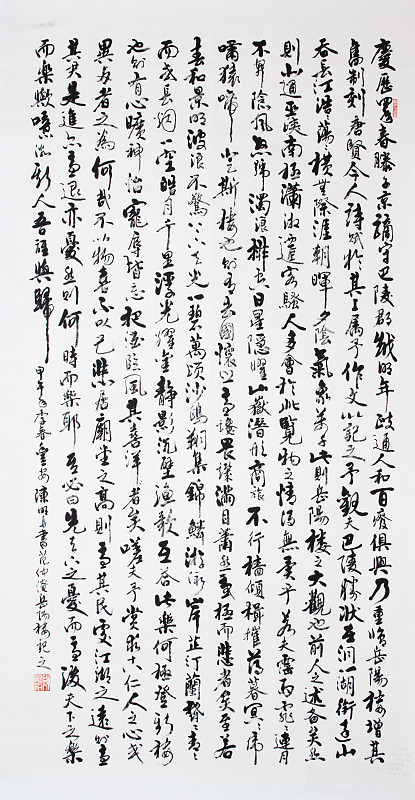 慶歷四年春滕子京謫守巴陵郡越明年政通人和百廢俱興乃重修岳陽樓增其
舊制刻唐賢今人詩賦於其上屬予作文以記之予觀夫巴陵勝狀在洞一湖銜遠山
吞長江浩浩蕩蕩橫無際涯朝暉夕陰氣象萬千此則岳陽樓之大觀也前人之述備矣然
則北通巫峽南極瀟湘遷客騷人多會於此覽物之情得無異乎若夫霪雨霏霏連月
不開陰風怒號濁浪排空日星隱曜山嶽潛形商旅不行檣傾楫摧薄暮冥冥虎
嘯猿啼登斯樓也則有去國懷鄉憂讒畏譏滿目蕭然感極而悲者矣至若
春和景明波瀾不驚上下天光一碧萬頃沙鷗翔集錦鱗游泳岸芷汀蘭鬱鬱青青
而或長煙一空皓月千里浮光耀金靜影沉璧漁歌互答此樂何極登斯樓
也則有心曠神怡寵辱皆忘把酒臨風其喜洋洋者矣嗟夫予嘗求古仁人之心或
異二者之為何哉不以物喜不以己悲居廟堂之高則憂其民處江湖之遠則憂
其君是進亦憂退亦憂然則何時而樂耶其必曰先天下之憂而憂後天下之樂
而樂歟噫微斯人吾誰與歸
甲午年季春雲安陳明書范仲淹岳陽樓記文